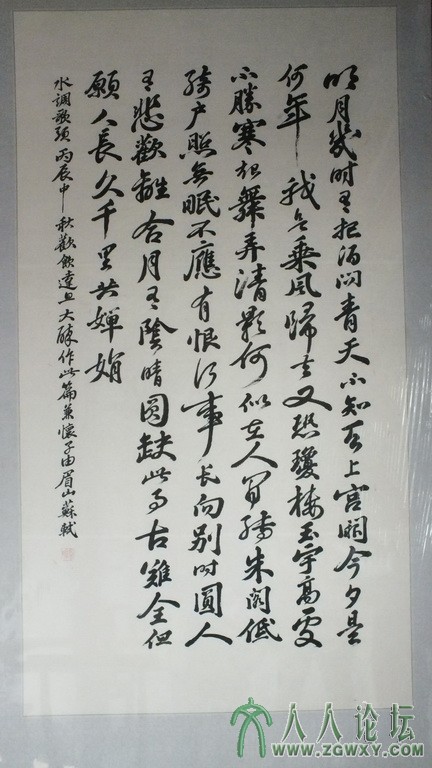 明月幾时有把酒问青天不知天上宫阙今夕是
何年我欲乘风歸去又恐瓊楼玉宇高處
不勝寒起舞弄清影何似在人间轉朱阁低
绮户照無眠不應有恨何事长向别时圆人
有悲歡離合月有陰晴圆缺此事古難全但
願人長久千里共嬋娟
水調歌頭 丙辰中秋歡飲達旦大醉作此篇兼懷子由眉山蘇軾
人人论坛
WWW.ZGWXY.COM